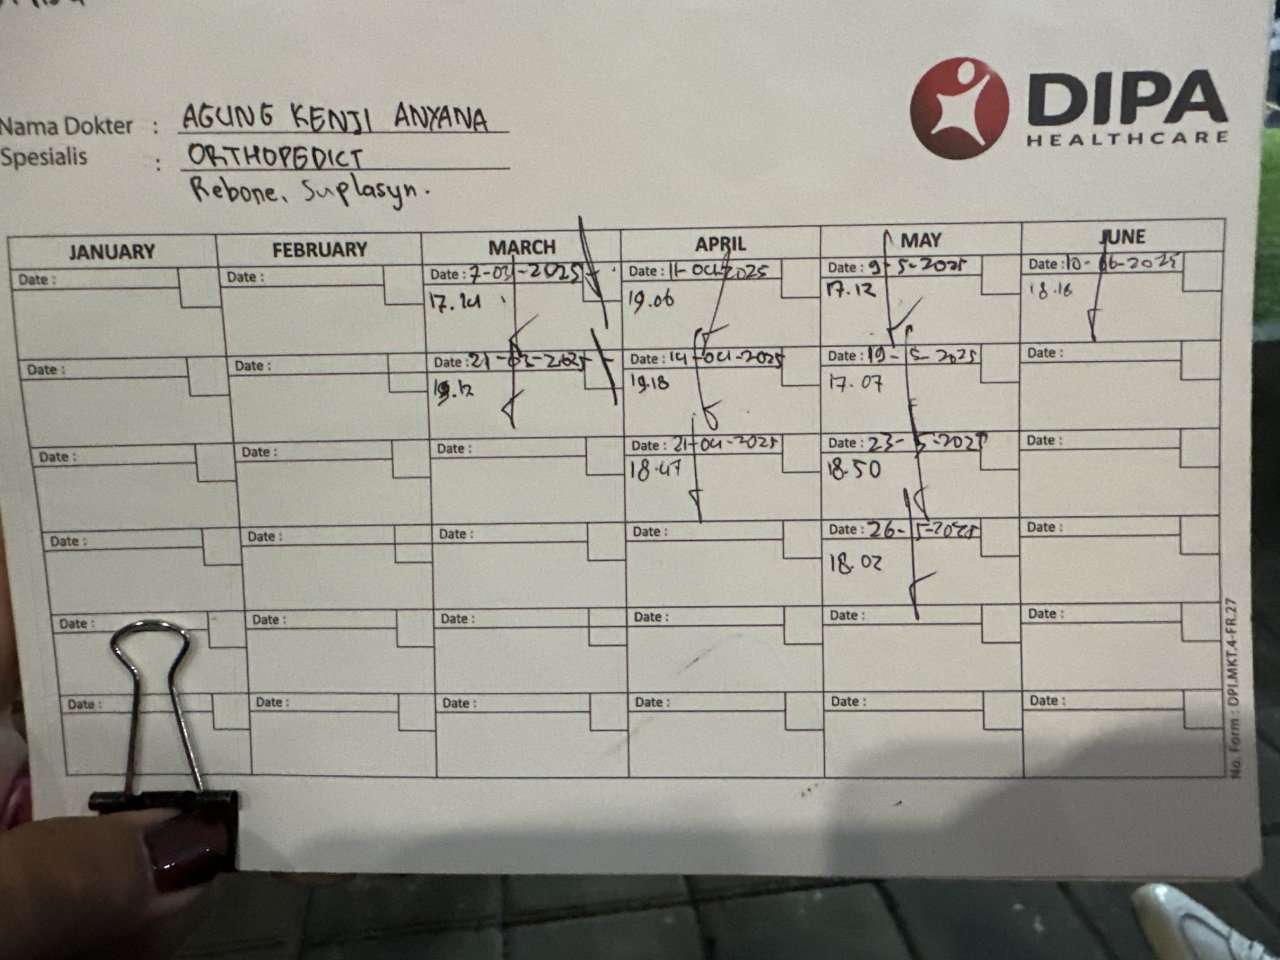 DIPA
HEALTHCARE
Nama Dokter : AGUNG KENJI ANYANA
Spesialis : ORTHOPEDICT
Rebone, Suplasyn.
JANUARY FEBRUARY MARCH APRIL MAY JUNE
Date : Date : Date : 7-03-2025 Date : 11-04-2025 Date : 9-5-2025 Date : 10-06-2025
17.14 19.06 17.12 18.16
Date : Date : Date : 21-03-2025 Date : 14-04-2025 Date : 19-5-2025 Date :
19.12 19.18 17.07
Date : Date : Date : Date : 21-04-2025 Date : 23-5-2025 Date :
18.47 18.50
Date : Date : Date : Date : Date : 26-5-2025 Date :
18.02
Date : Date : Date : Date : Date : Date :
Date : Date : Date : Date : Date : Date :
No. Form : DPI.MKT.4-FR.27